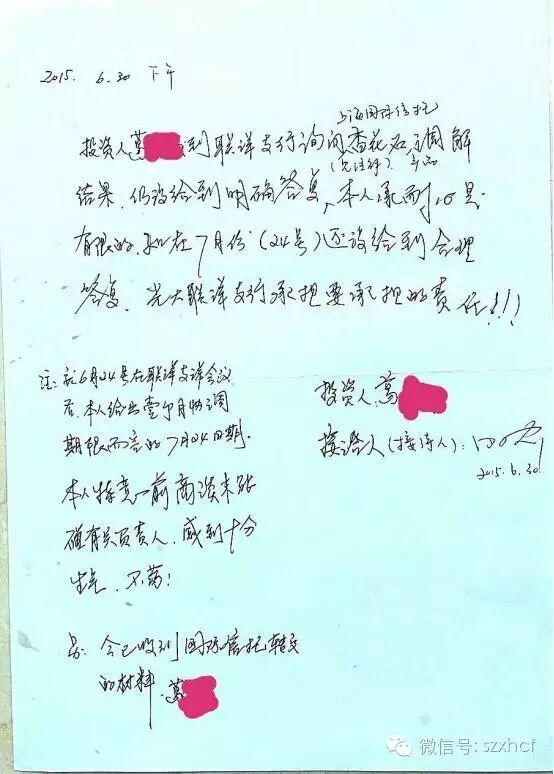 2015. 6.30 下午
上海国际信托
投资人葛 到联洋支行询问 香花石 调解
结果,仍没给到明确答复,本人承耐心是
有限的,如在7月份(24号)还没给到合理
答复,光大联洋支行承担要承担的责任!!!
注:就6月24号在联洋支行会议
本人给出壹个月协调
期限而言的7月24日期.
本人 前商谈未
有关负责人,感到十分
生气,不满!
投资人:葛
接洽人(接待人):
2015.6.30
另:今已收到国际信托转交
的材料.葛
微信号: szxhcf